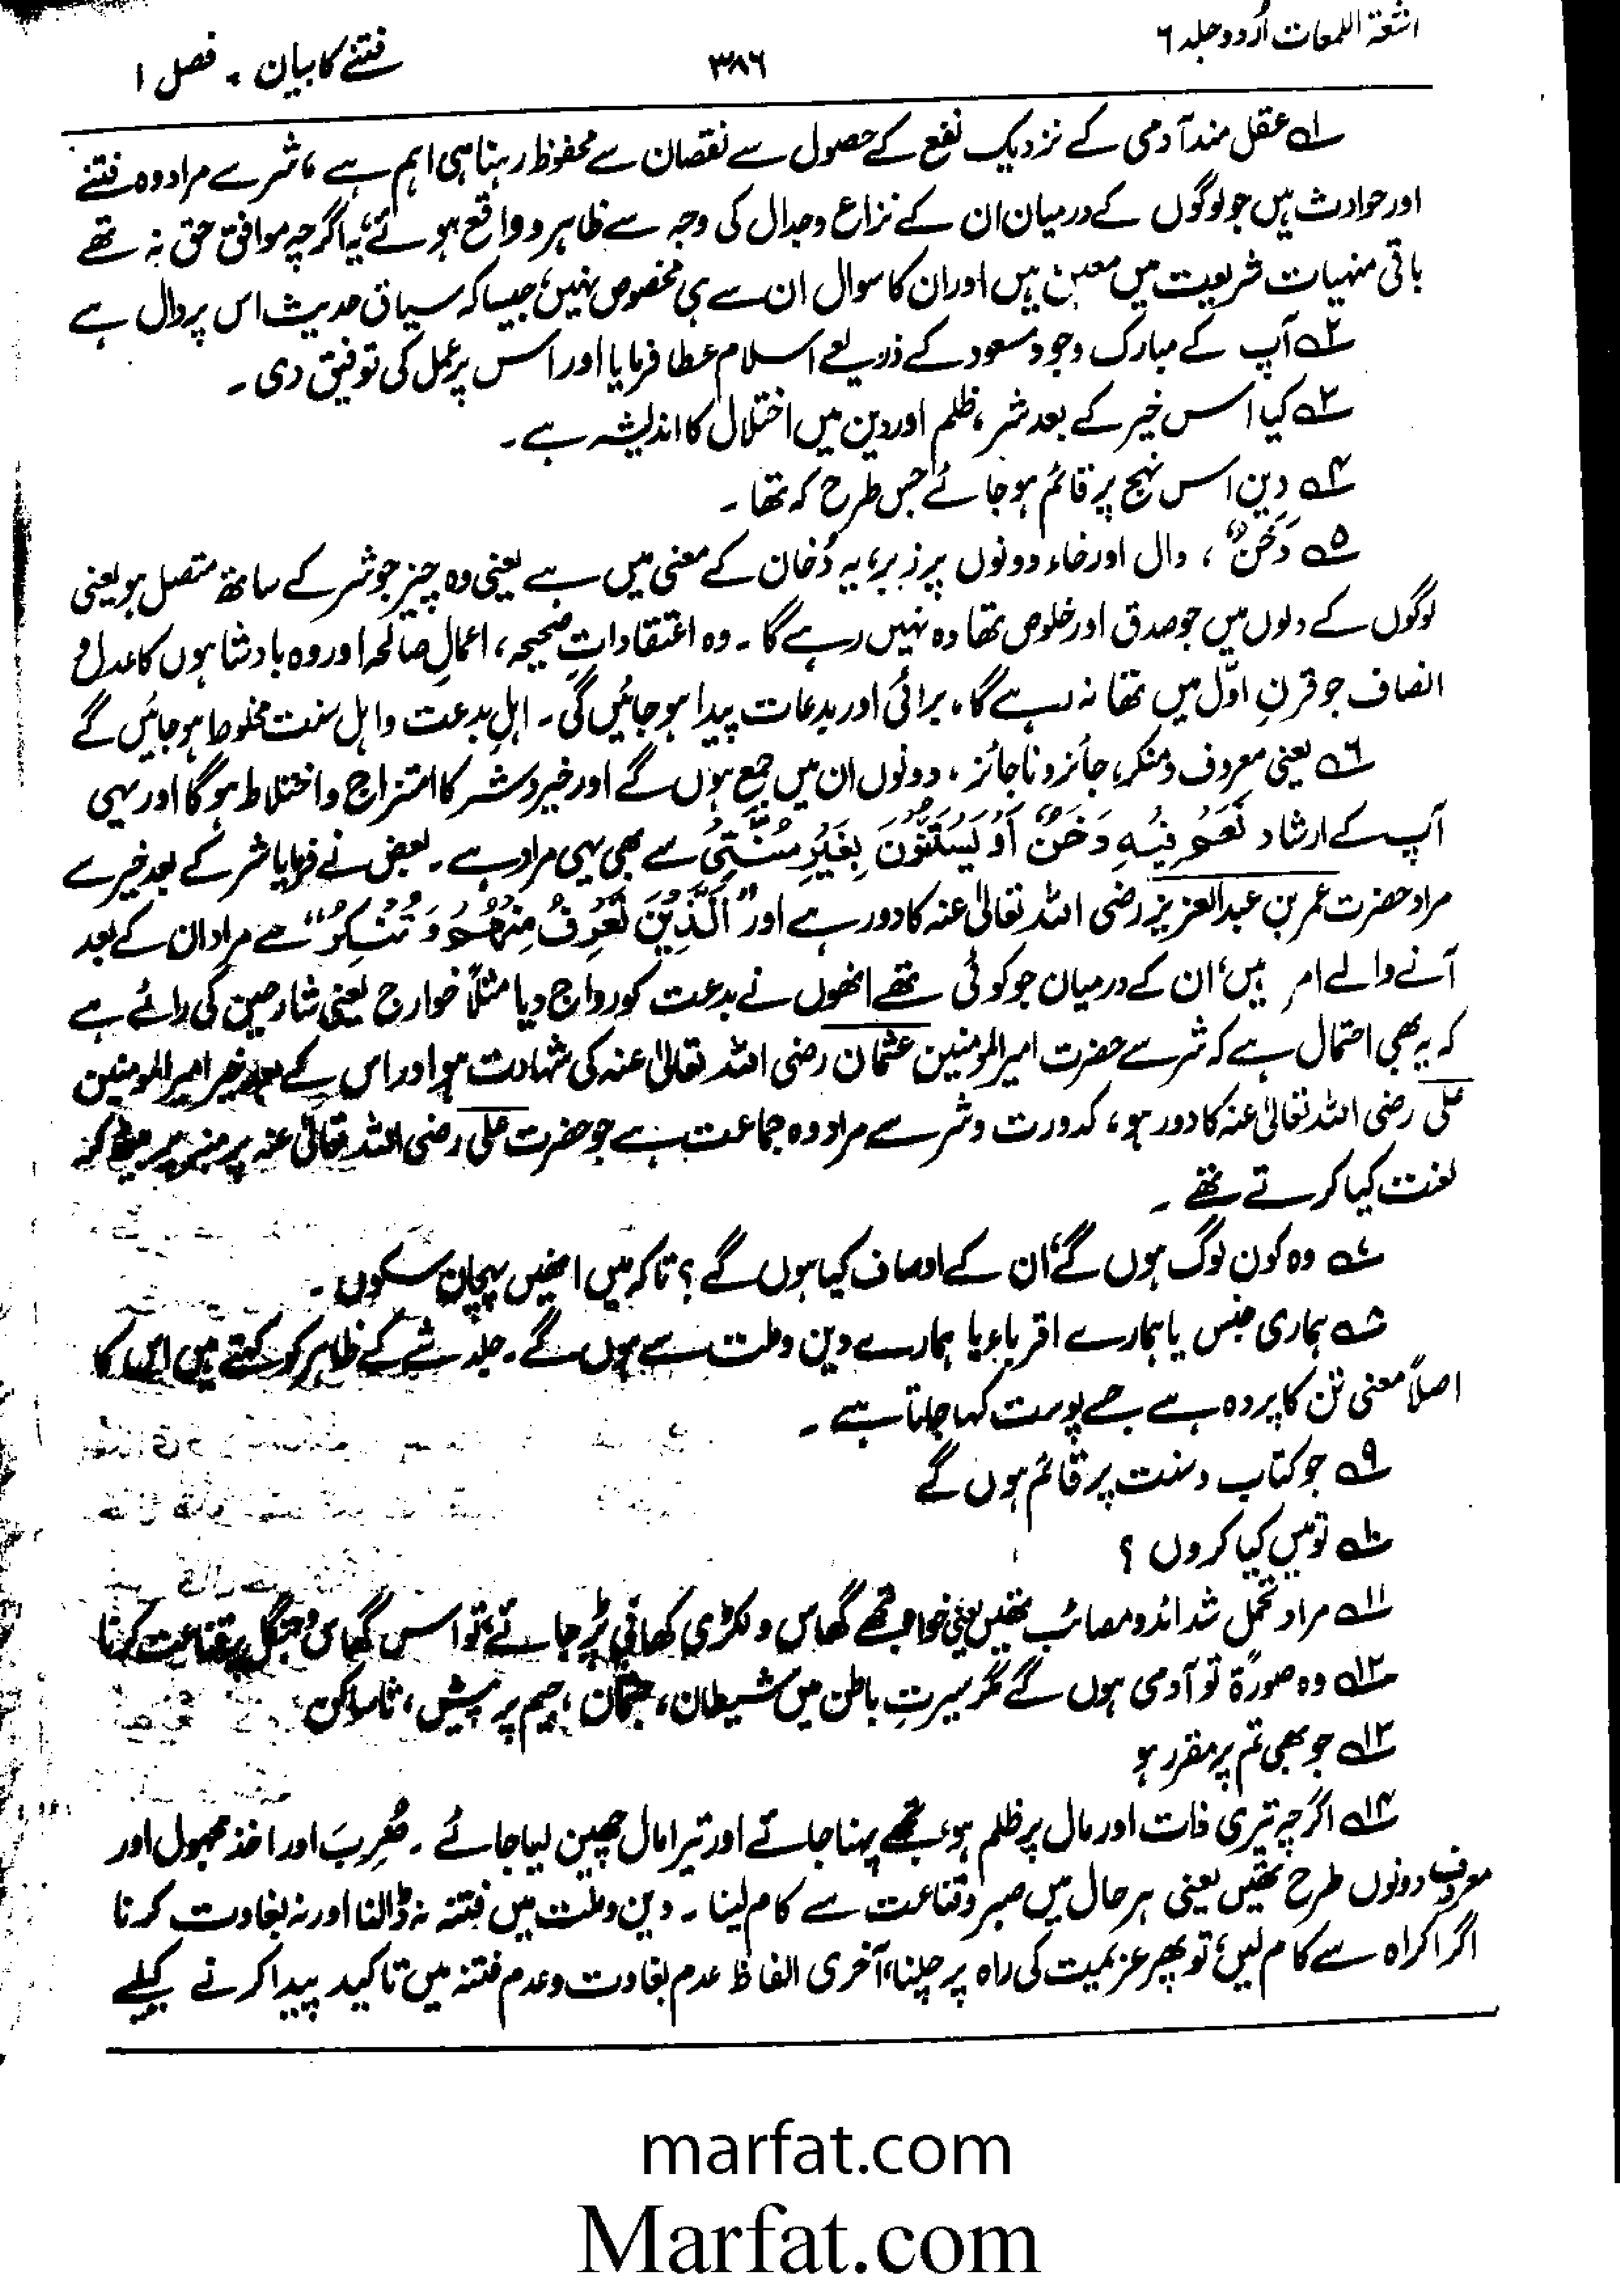 اشعۃ اللمعات اُردو جلد ۶
۳۸۶
فتنے کا بیان ۔ فصل ۱
۱ے عقل مند آدمی کے نزدیک نفع کے حصول سے نقصان سے محفوظ رہنا ہی اہم ہے ، شر سے مراد وہ فتنے
اور حوادث ہیں جو لوگوں کے درمیان ان کے نزاع و جدال کی وجہ سے ظاہر و واقع ہوئے، یہ اگرچہ موافق حق نہ تھے
باقی منہیات شریعت میں معین ہیں اور ان کا سوال ان سے ہی مخصوص نہیں، جیسا کہ سیاق حدیث اس پر دال ہے
۲ے آپ کے مبارک وجود مسعود کے ذریعے اسلام عطا فرمایا اور اس پر عمل کی توفیق دی ۔
۳ے کیا اس خیر کے بعد شر ، ظلم اور دین میں اختلال کا اندیشہ ہے ۔
۴ے دین اس نہج پر قائم ہو جائے جس طرح کہ تھا ۔
۵ے دَخَنٌ ، دال اور خاء دونوں پر زبر، یہ دُخان کے معنی میں ہے یعنی وہ چیز جو شر کے ساتھ متصل ہو یعنی
لوگوں کے دلوں میں جو صدق اور خلوص تھا وہ نہیں رہے گا ۔ وہ اعتقاداتِ صحیحہ ، اعمالِ صالحہ اور وہ بادشاہوں کا عدل و
انصاف جو قرنِ اوّل میں تھا نہ رہے گا ، برائی اور بدعات پیدا ہو جائیں گی ۔ اہلِ بدعت و اہل سنت مخلوط ہو جائیں گے
۶ے یعنی معروف و منکر، جائز و ناجائز ، دونوں ان میں جمع ہوں گے اور خیر و شر کا امتزاج و اختلاط ہو گا اور یہی
آپ کے ارشاد نَعَمْ فِیْہِ دَخَنٌ اَوْ یَسْتَنُّوْنَ بِغَیْرِ سُنَّتِیْ سے بھی یہی مراد ہے ۔ بعض نے فرمایا شر کے بعد خیر سے
مراد حضرت عمر بن عبدالعزیز رضی اللہ تعالیٰ عنہ کا دور ہے اور ”اَلَّذِیْنَ تَعْرِفُ مِنْھُمْ وَ تُنْکِرُ“ سے مراد ان کے بعد
آنے والے امر ہیں، ان کے درمیان جو کوئی تھے انھوں نے بدعت کو رواج دیا مثلاً خوارج یعنی شارحین کی رائے ہے
کہ یہ بھی احتمال ہے کہ شر سے حضرت امیر المومنین عثمان رضی اللہ تعالیٰ عنہ کی شہادت ہو اور اس کے بعد خیر امیر المومنین
علی رضی اللہ تعالیٰ عنہ کا دور ہو ، کدورت و شر سے مراد وہ جماعت ہے جو حضرت علی رضی اللہ تعالیٰ عنہ پر منبر پر بیٹھ کر
لعنت کیا کرتے تھے ۔
۷ے وہ کون لوگ ہوں گے، ان کے اوصاف کیا ہوں گے ؟ تاکہ میں انھیں پہچان سکوں ۔
۸ے ہماری جنس یا ہمارے اقرباء یا ہمارے دین و ملت سے ہوں گے ۔ جلد شے کے ظاہر کو کہتے ہیں اس کا
اصلاً معنی تن کا پردہ ہے جسے پوست کہا جاتا ہے ۔
۹ے جو کتاب و سنت پر قائم ہوں گے
۱۰ے تو میں کیا کروں ؟
۱۱ے مراد تحمل شدائد و مصائب ہیں یعنی خواہ تجھے گھاس و لکڑی کھانی پڑ جائے، تو اس گھاس و جنگل پر قناعت کرنا
۱۲ے وہ صورۃً تو آدمی ہوں گے مگر سیرتِ باطن میں شیطان ، جثمان ، جیم پر پیش ، ثا ساکن
۱۳ے جو بھی تم پر مقرر ہو
۱۴ے اگرچہ تیری ذات اور مال پر ظلم ہو، تجھے پہنا جائے اور تیرا مال چھین لیا جائے ۔ ضُرِبَ اور اخذ مجہول اور
معروف دونوں طرح ہیں یعنی ہر حال میں صبر و قناعت سے کام لینا ۔ دین و ملت میں فتنہ نہ ڈالنا اور نہ بغاوت کرنا
اگر اکراہ سے کام لیں، تو پھر عزیمت کی راہ پر چلنا، آخری الفاظ عدم بغاوت و عدم فتنہ میں تاکید پیدا کرنے کیلئے
marfat.com
Marfat.com